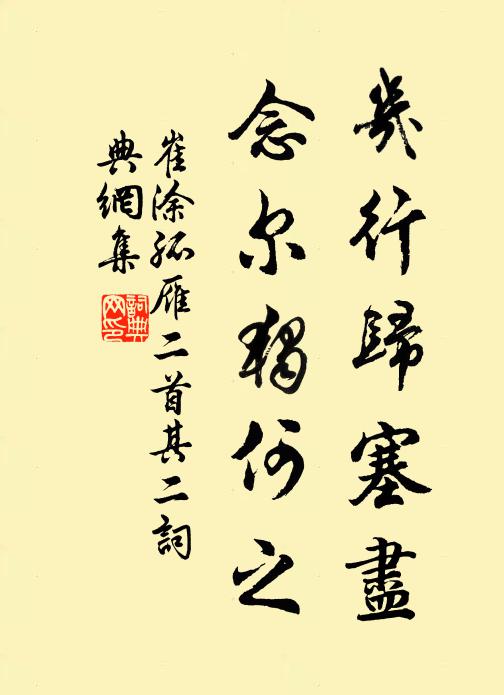 幾行歸塞盡
念尔獨何之
崔涂孤雁二首其二詞
典網集
詞典網印